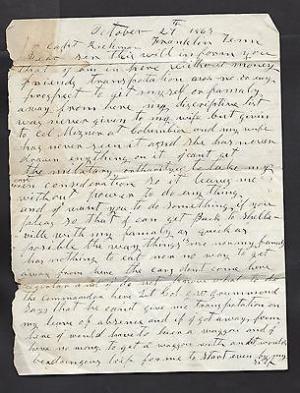 October 27th 1863
to Capt Franklin Tenn
Dear Sen this will inform you
that I am in here without money
friends transpotation ara no
prospect to git myself or famaly
away from here my discriptive list
was never given to my wife but given
to Col Mizner at Columbia and my wife
has never seen it and she has never
drawn enything on it I cant get
the melatary authoritys to take my
consideration so it leave me
without power to do eny thing
and I want you to do something if you
pleas so that I can get Back to Shelbe-
ville with my famaly as quick as
posible the way things is now my famaly
has nothing to eat nor no way to get
away from here the cars dont come here
do not know what to do
the commandon here Lut Col
says that he cant give me transpotation on
my leave of absence and if I got away from
here I would have to hire a waggon and I
have no money to get a waggon with and it would
be for me to start even by my
self